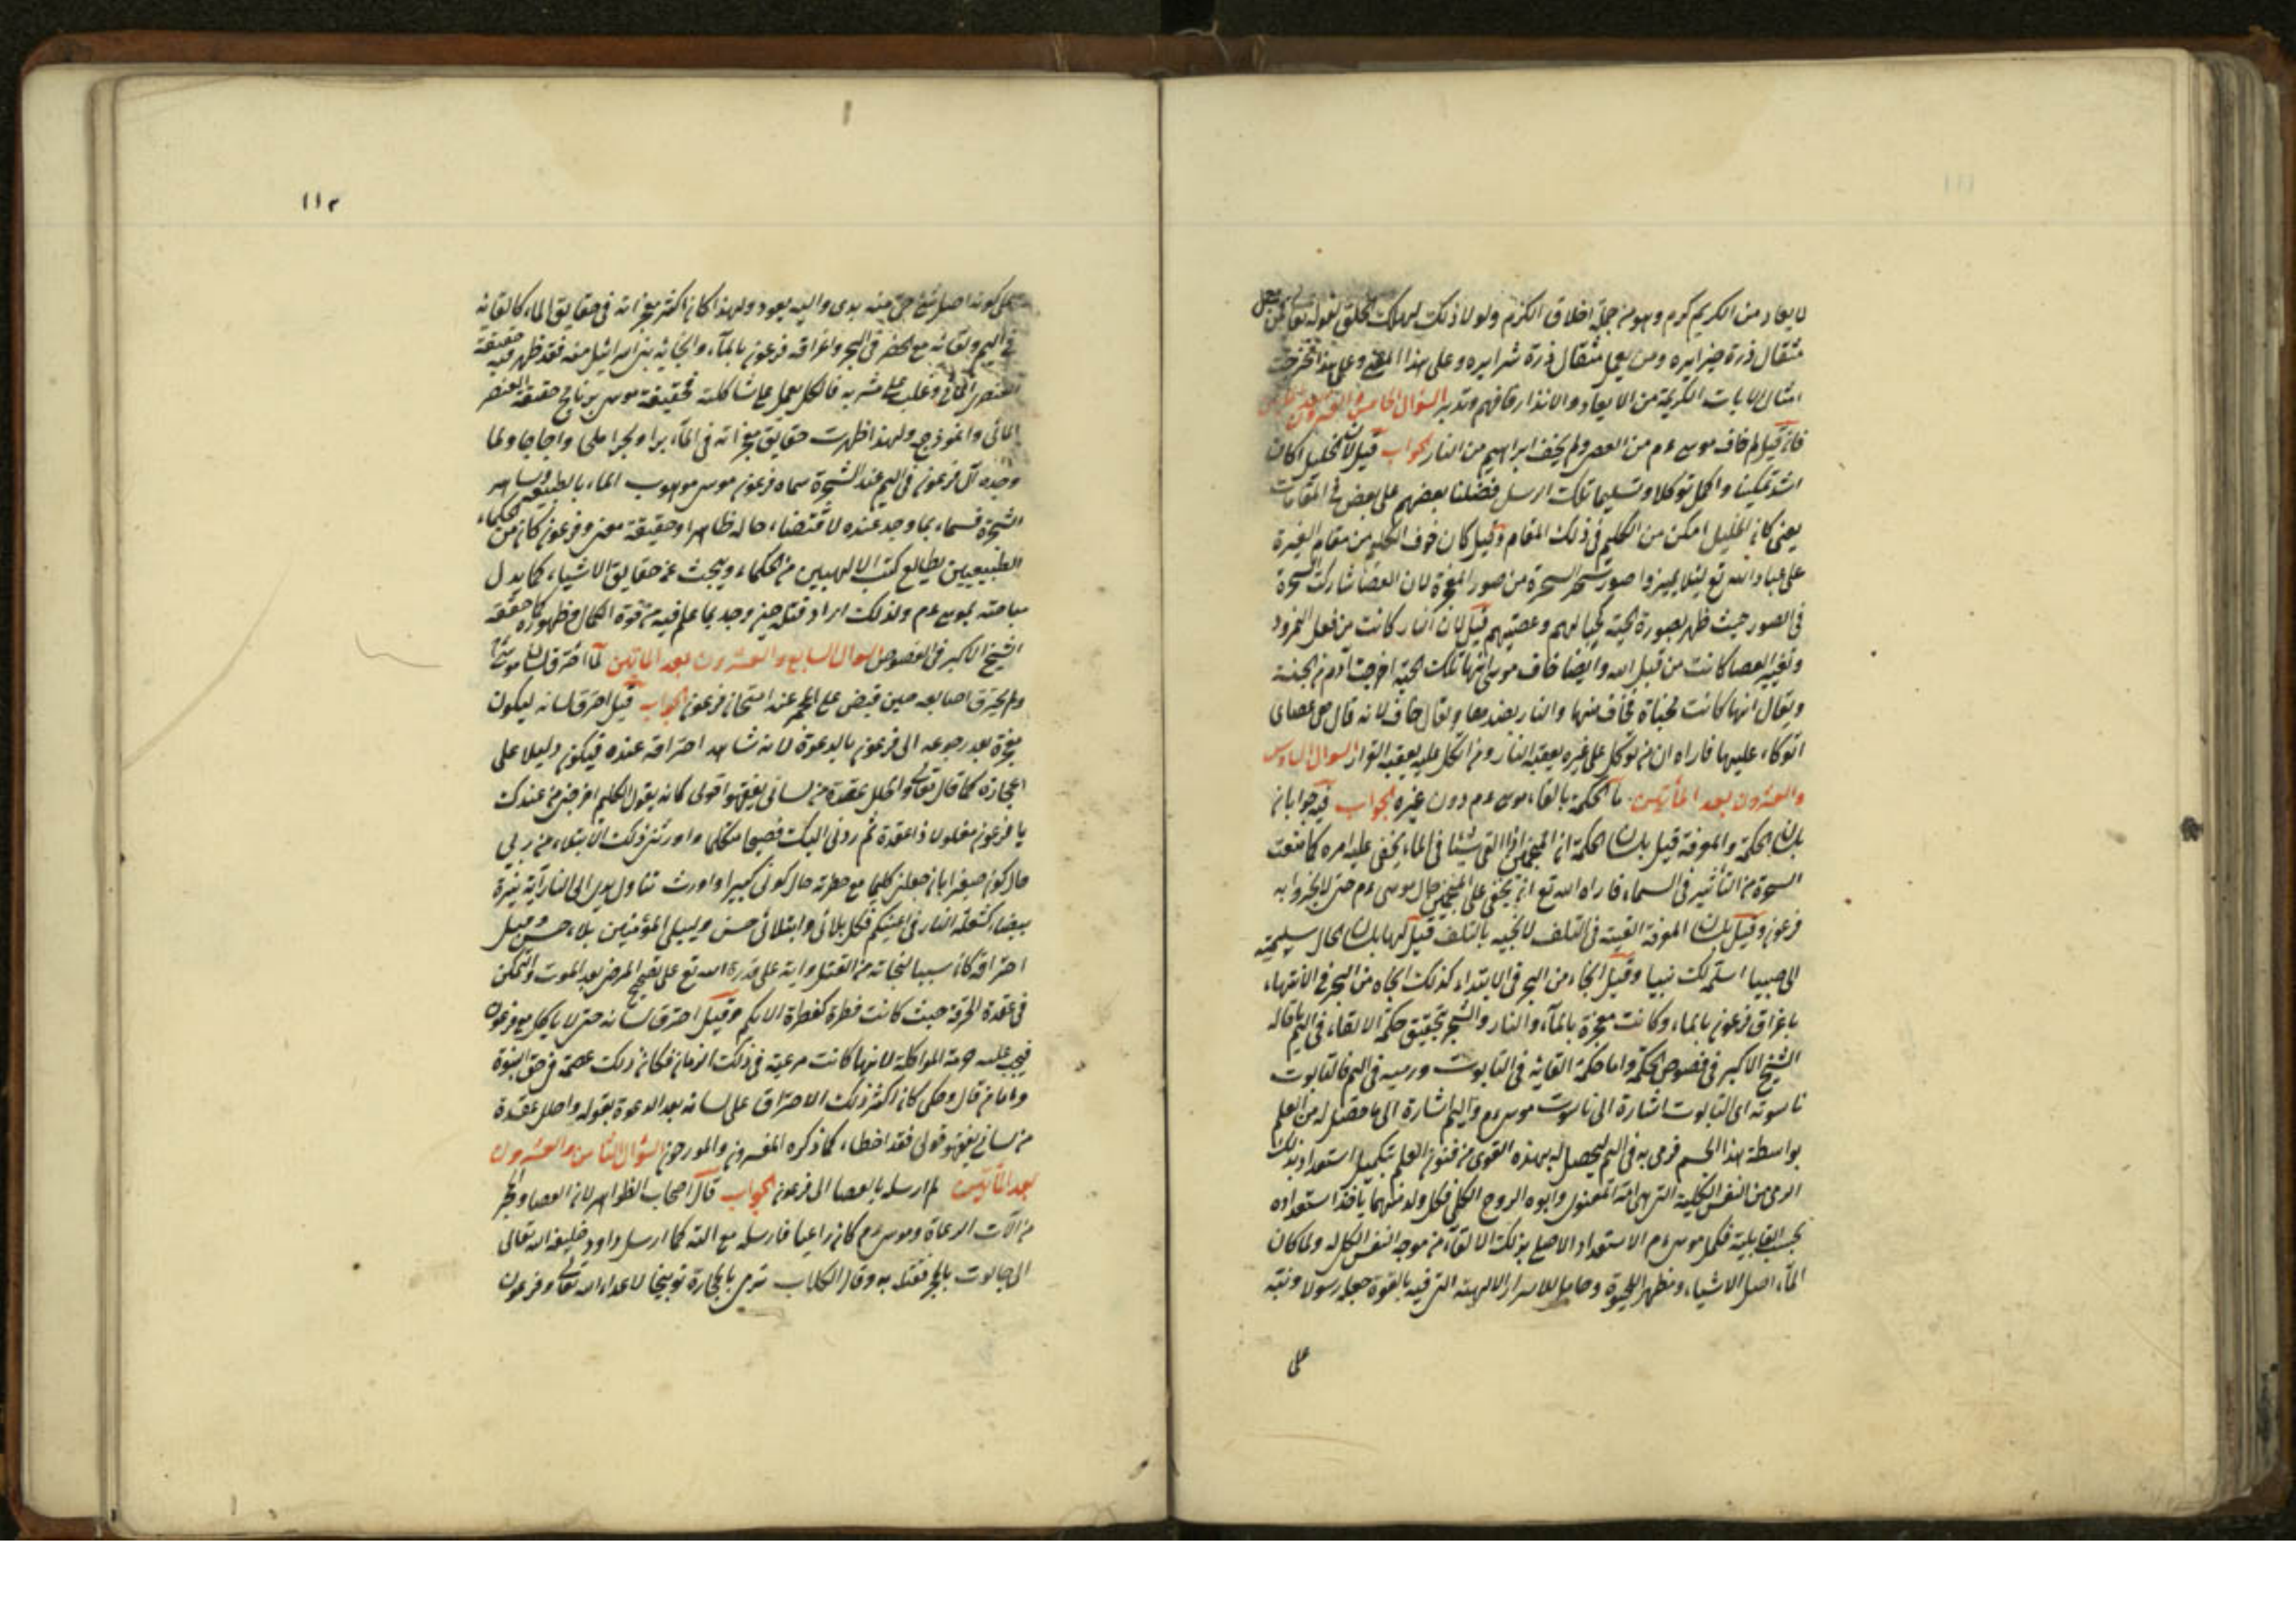 لا يعاد من الكريم كرم وهو من جملة اخلاق الكرم ولولا ذلك لهلك الخلق لقوله تعالى فمن يعمل
مثقال ذرة خيرا يره ومن يعمل مثقال ذرة شرا يره وعلى هذا المعنى وعلى هذا تخرجت
امثال الايات الكريمة من الايعاد والانذار فافهم وتدبر السؤال الخامس والعشرون
فان قيل لم خاف موسى ءم من العصى ولم يخف ابراهيم من النار الجواب قيل لان الخليل كان
اشد تمكينا واكمل توكلا وتسليما تلك الرسل فضلنا بعضهم على بعض في المقامات
يعنى كان الخليل امكن من الكليم فى ذلك المقام وقيل كان خوف الكليم من مقام الغيرة
على عباد الله تع لئلا يميزوا صور سحر السحرة من صور المعجزة لان العصا شاركت السحرة
فى الصور حيث ظهر بصورة الحية كحيالهم وعصيهم قيل لان النار كانت من فعل النمرود
وتغيير العصا كانت من قبل الله وايضا خاف موسى انها تلك الحية اخرجت آدم من الجنة
ويقال انها كانت مخباة فخاف منها والنار بضدها ويقال خاف لانه قال هى عصاى
اتوكاء عليها فاراه ان من توكل على غيره يعقبه النار ومن اتكل عليه يعقبه النوار السوال السادس
والعشرون بعد المأتين ما الحكمة بالقاء موسى ءم دون غيره الجواب فيه جوابان
بلسان الحكمة والمعرفة قيل بلسان الحكمة ان المنجمين اذا القى شيئا فى الماء يخفى عليه امره كما منعت
السحرة من التأثير فى السماء فاراد الله تع ان يخفى على المنجمين حال موسى ءم حتى لا يخبروا به
فرعون وقيل بلسان المعرفة القيته فى التلف لانجيه بالتلف قيل لها بلسان الحال سلميه
الى صبيا اسلمه لك نبيا وقيل انجاه من البحر فى الابتداء كذلك انجاه من البحر فى الانتهاء
باغراق فرعون بالماء وكانت معجزة بالمآء والنار والشجر تحقيق حكمة الالقاء فى اليم ما قاله
الشيخ الاكبر فى فصوص الحكم واما حكمة القائه فى التابوت ورميه فى اليم فالتابوت
ناسوته اى التابوت اشارة الى ناسوت موسى ءم واليم اشارة الى ما حصل له من العلم
بواسطة هذا الجسم فرمى به فى اليم ليحصل له بهذه القوى من فنون العلم بتكميل استعداد بذلك
الرمى من النفس الكلية التى هى امه المعنوى وابوه الروح الكلى فكل ولد منهما يأخذ استعداده
بحسب القابلية فكمل موسى ءم الاستعداد الاصلى بذلك الالقاء من موجد النفس الكل له ولما كان
المآء اصل الاشياء ومظهر الحيوة وحاملا للاسرار الالهية التى فيه بالقوة جعله رسولا ونبه
على
١١٢
على كونه اصل شئ حى منه بدى واليه يعود ولهذا كان اكثر معجزاته فى حقايق الماء كالقائه
فى اليم ولقائه مع الخضر فى البحر واغراقه فرعون بالمآء وانجائه بنى اسرائيل منه فقد ظهر فيه حقيقة
العنصر المائى وغلب على مشربه فالكل يعمل على شاكلته فحقيقة موسى برنامج حقيقة العنصر
المائى وانموذجه ولهذا ظهرت حقايق معجزاته فى المآء برا وبحرا ملحى واجاجا ولما
وجده آل فرعون فى اليم عند الشجرة سماه فرعون موسى مو هوب الماء بالقبطية وسا هو
الشجرة فسماه بما وجد عنده لاقتضاء حاله ظاهرا وحقيقة معنى وفرعون كان من الحكماء
الطبيعيين يطالع كتب الالهيين من الحكماء ويبحث عن حقايق الاشياء كما يدل
مباحثه بموسى ءم ولذلك اراد قتله حين وجد بما علم فيه من قوة الكمال وظهوره كما حققه
الشيخ الاكبر فى الفصوص السوال السابع والعشرون بعد المأتين لما احترق لسان موسى
ولم يحترق اصابعه حين قبض على الجمر عند امتحان فرعون الجواب قيل احترق لسانه ليكون
معجزة بعد رجوعه الى فرعون بالدعوة لانه شاهد احتراقه عنده فيكون دليلا على
اعجازه كما قال تعالى واحلل عقدة من لسانى يفقهوا قولى كانه يقول الكليم اخرجنى من عندك
يا فرعون مغلولا ذا عقدة ثم ردنى اليك فصيحا متكلما واورثنى ذلك الابتلاء من ربى
حال كونى صغيرا بان جعلنى كليما مع حضرته حال كونى كبيرا واورث تناول يدى الى النار آية نيرة
بيضاء كشعلة النار فى اعينكم فكل بلائى وابتلائى حسن وليبلى المؤمنين بلاء حسن وقيل
احتراقه كان سببا لنجاته من القتل واية على قدرة الله تع على تصحيح المرض بعد الموت والتمكن
فى عقدة الحرقة حيث كانت فطرة كفطرة الابكم وقيل احترق لسانه حتى لا يأكل مع فرعون
فيجب عليه حرمة المواكلة لانها كانت مرعية فى ذلك الزمان فكان ذلك عصمة فى حق النبوة
واما من قال وحكى كان اكثر ذلك الاحتراق على لسانه بعد الدعوة بقوله واحلل عقدة
من لسانى يفقهو قولى فقد اخطاء كما ذكره المفسرون والمورخون السؤال الثامن والعشرون
بعد المأتين لم ارسله بالعصا الى فرعون الجواب قال اصحاب الظواهر لان العصا والحجر
من آلات الرعاة وموسى ءم كان راعيا فارسله مع الته كما ارسل داود خليفة الله تعالى
الى جالوت بالحجر فقتله به وقال الكلاب ترمى بالحجارة توبيخا لاعداء الله تعالى وفرعون